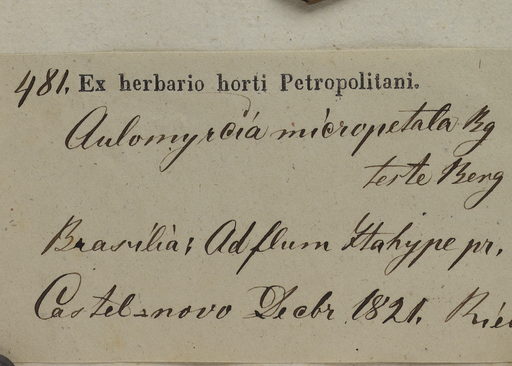 481. Ex herbario horti Petropolitani.
Aulomyrcia micropetala Bg
teste Berg
Brasilia; Ad flum Itahype pr.
Castel=novo Decbr 1821.